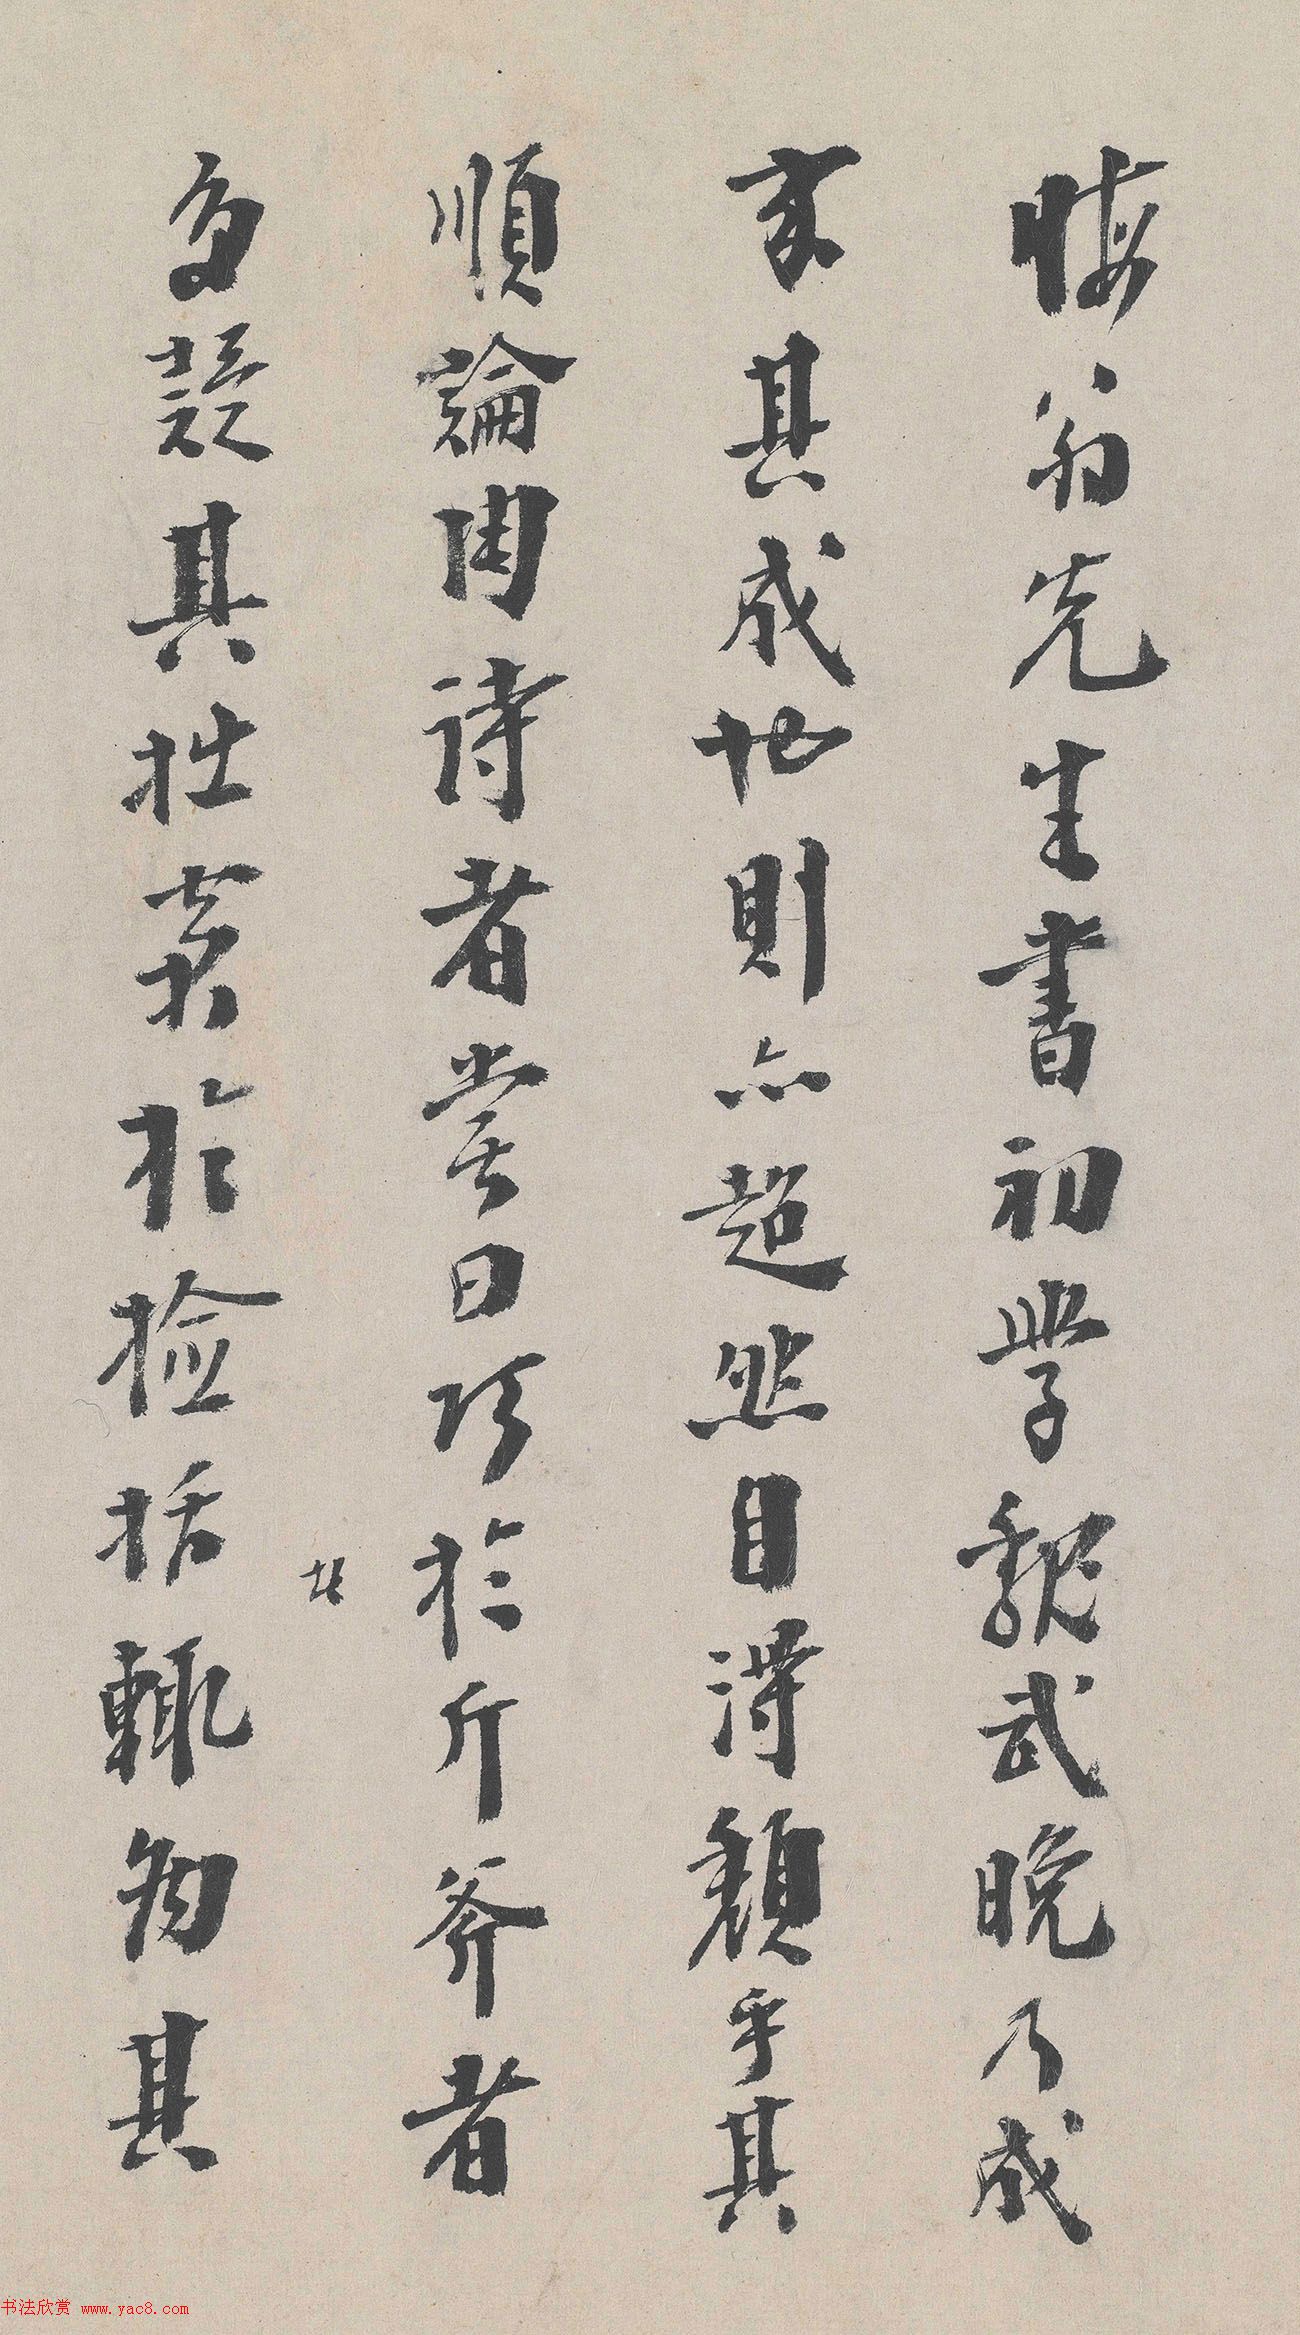 晦翁先生書初學魏武晚乃成
家其成地則亦超然自得頹乎其
順論陶詩者嘗曰巧於斤斧者
多疑其拙窘於檢括輒其
书法欣赏 www.yac8.com